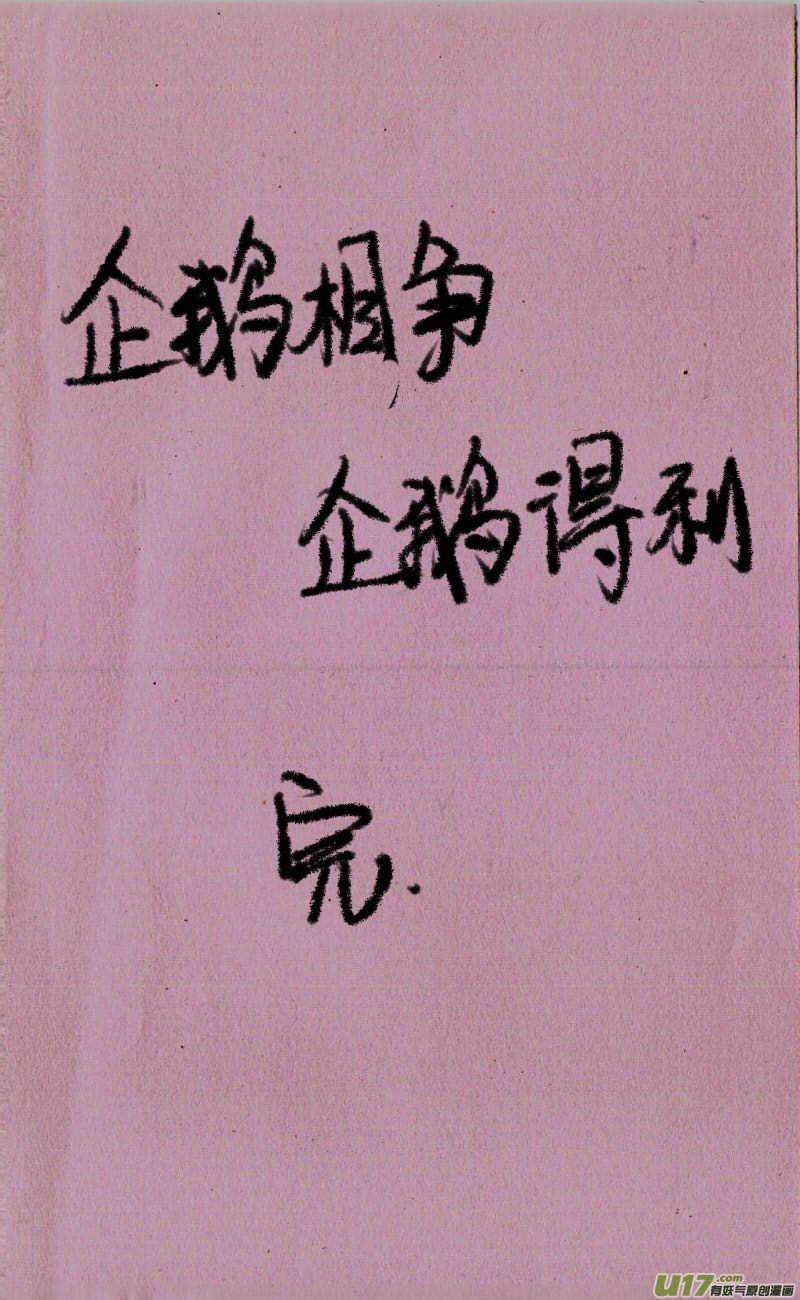 企鹅相争，
企鹅得利
完.
U17.com
有妖气原创漫画